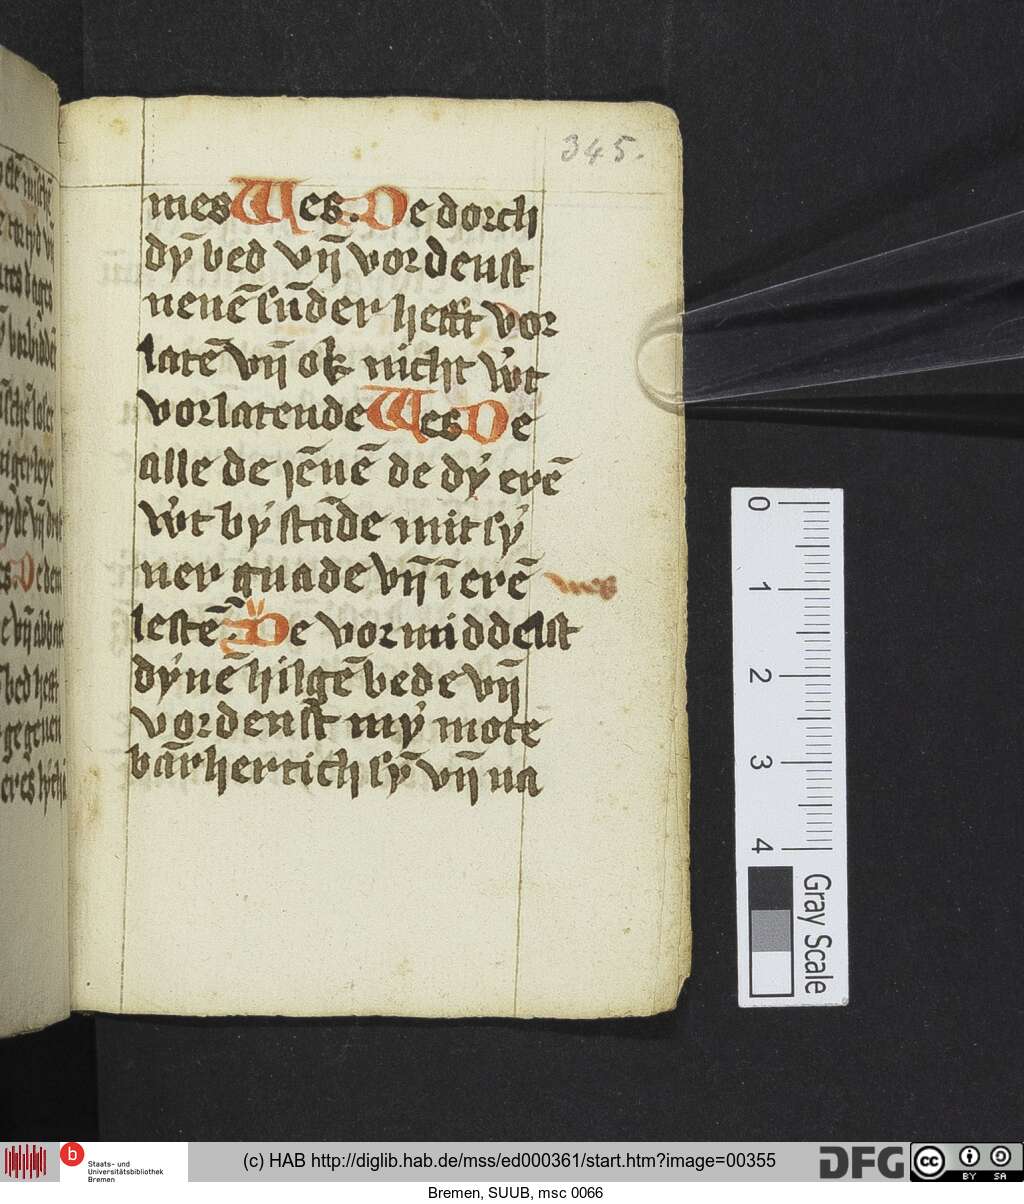 345.
mes Wes. De dorch
dȳ bed vn̄ vordenst
nenē sūder hefft vor
latē vn̄ ok nicht wͤt
vorlatende Wes De
alle de jēnē de dẏ erē
wͤt bẏ stāde mit sẏ
ner gnade vn̄ ī erē
wes
lestē. De vormiddelst
dẏnē hilgē bede vn̄
vordenst mẏ motē
bārhertich sȳ vn̄ na
0
1
2
3
4
Gray Scale
b
Staats- und
Universitätsbibliothek
Bremen
(c) HAB http://diglib.hab.de/mss/ed000361/start.htm?image=00355
DFG
cc
BY SA
Bremen, SUUB, msc 0066